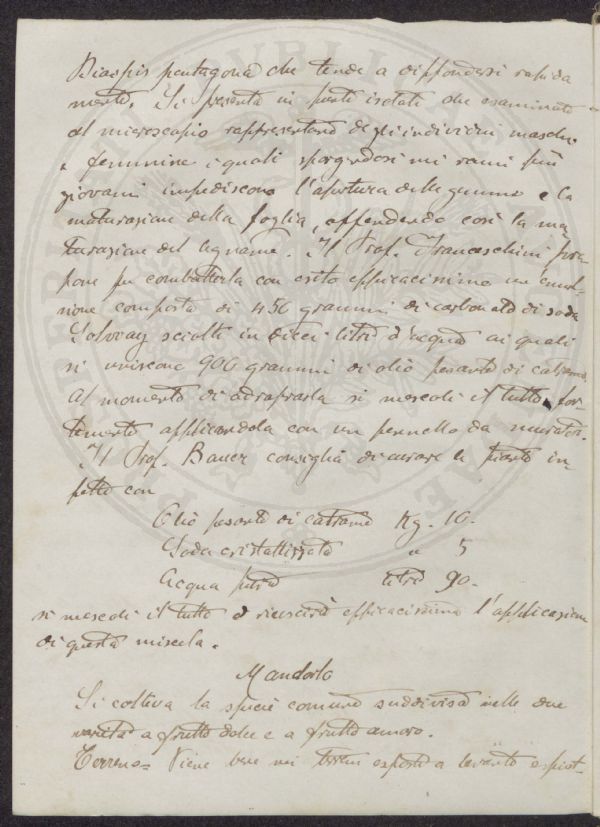 Diaspis pentagona che tende a diffondersi rapida
mente. Si presenta in punti isolati che esaminati
al microscopio rappresentano degli individui maschi
e femmine i quali spargendosi nei rami più
giovani impediscono l'apertura delle gemme e la
maturazione della foglia, offendendo così la ma
turazione del legname. Il Prof. Franceschini pro
pone per combatterla con esito efficacissimo un'emul
sione composta di 450 grammi di carbonato di soda
Solvay sciolti in dieci litri d'acqua ai quali
si uniscono 900 grammi di olio pesante di catrame.
Al momento di adoprarla si mescoli il tutto for-
temente applicandola con un pennello da muratori.
Il Prof. Bauer consiglia di curare le piante in
fette con
Olio pesante di catrame Kg. 10.
Soda cristallizzata " 5
Acqua pura litri 90.
si mescoli il tutto e riuscirà efficacissima l'applicazione
di questa miscela.
Mandorlo
Si coltiva la specie comune suddivisa nelle due
varietà a frutto dolce e a frutto amaro.
Terreno = Viene bene nei terreni esposti a levante